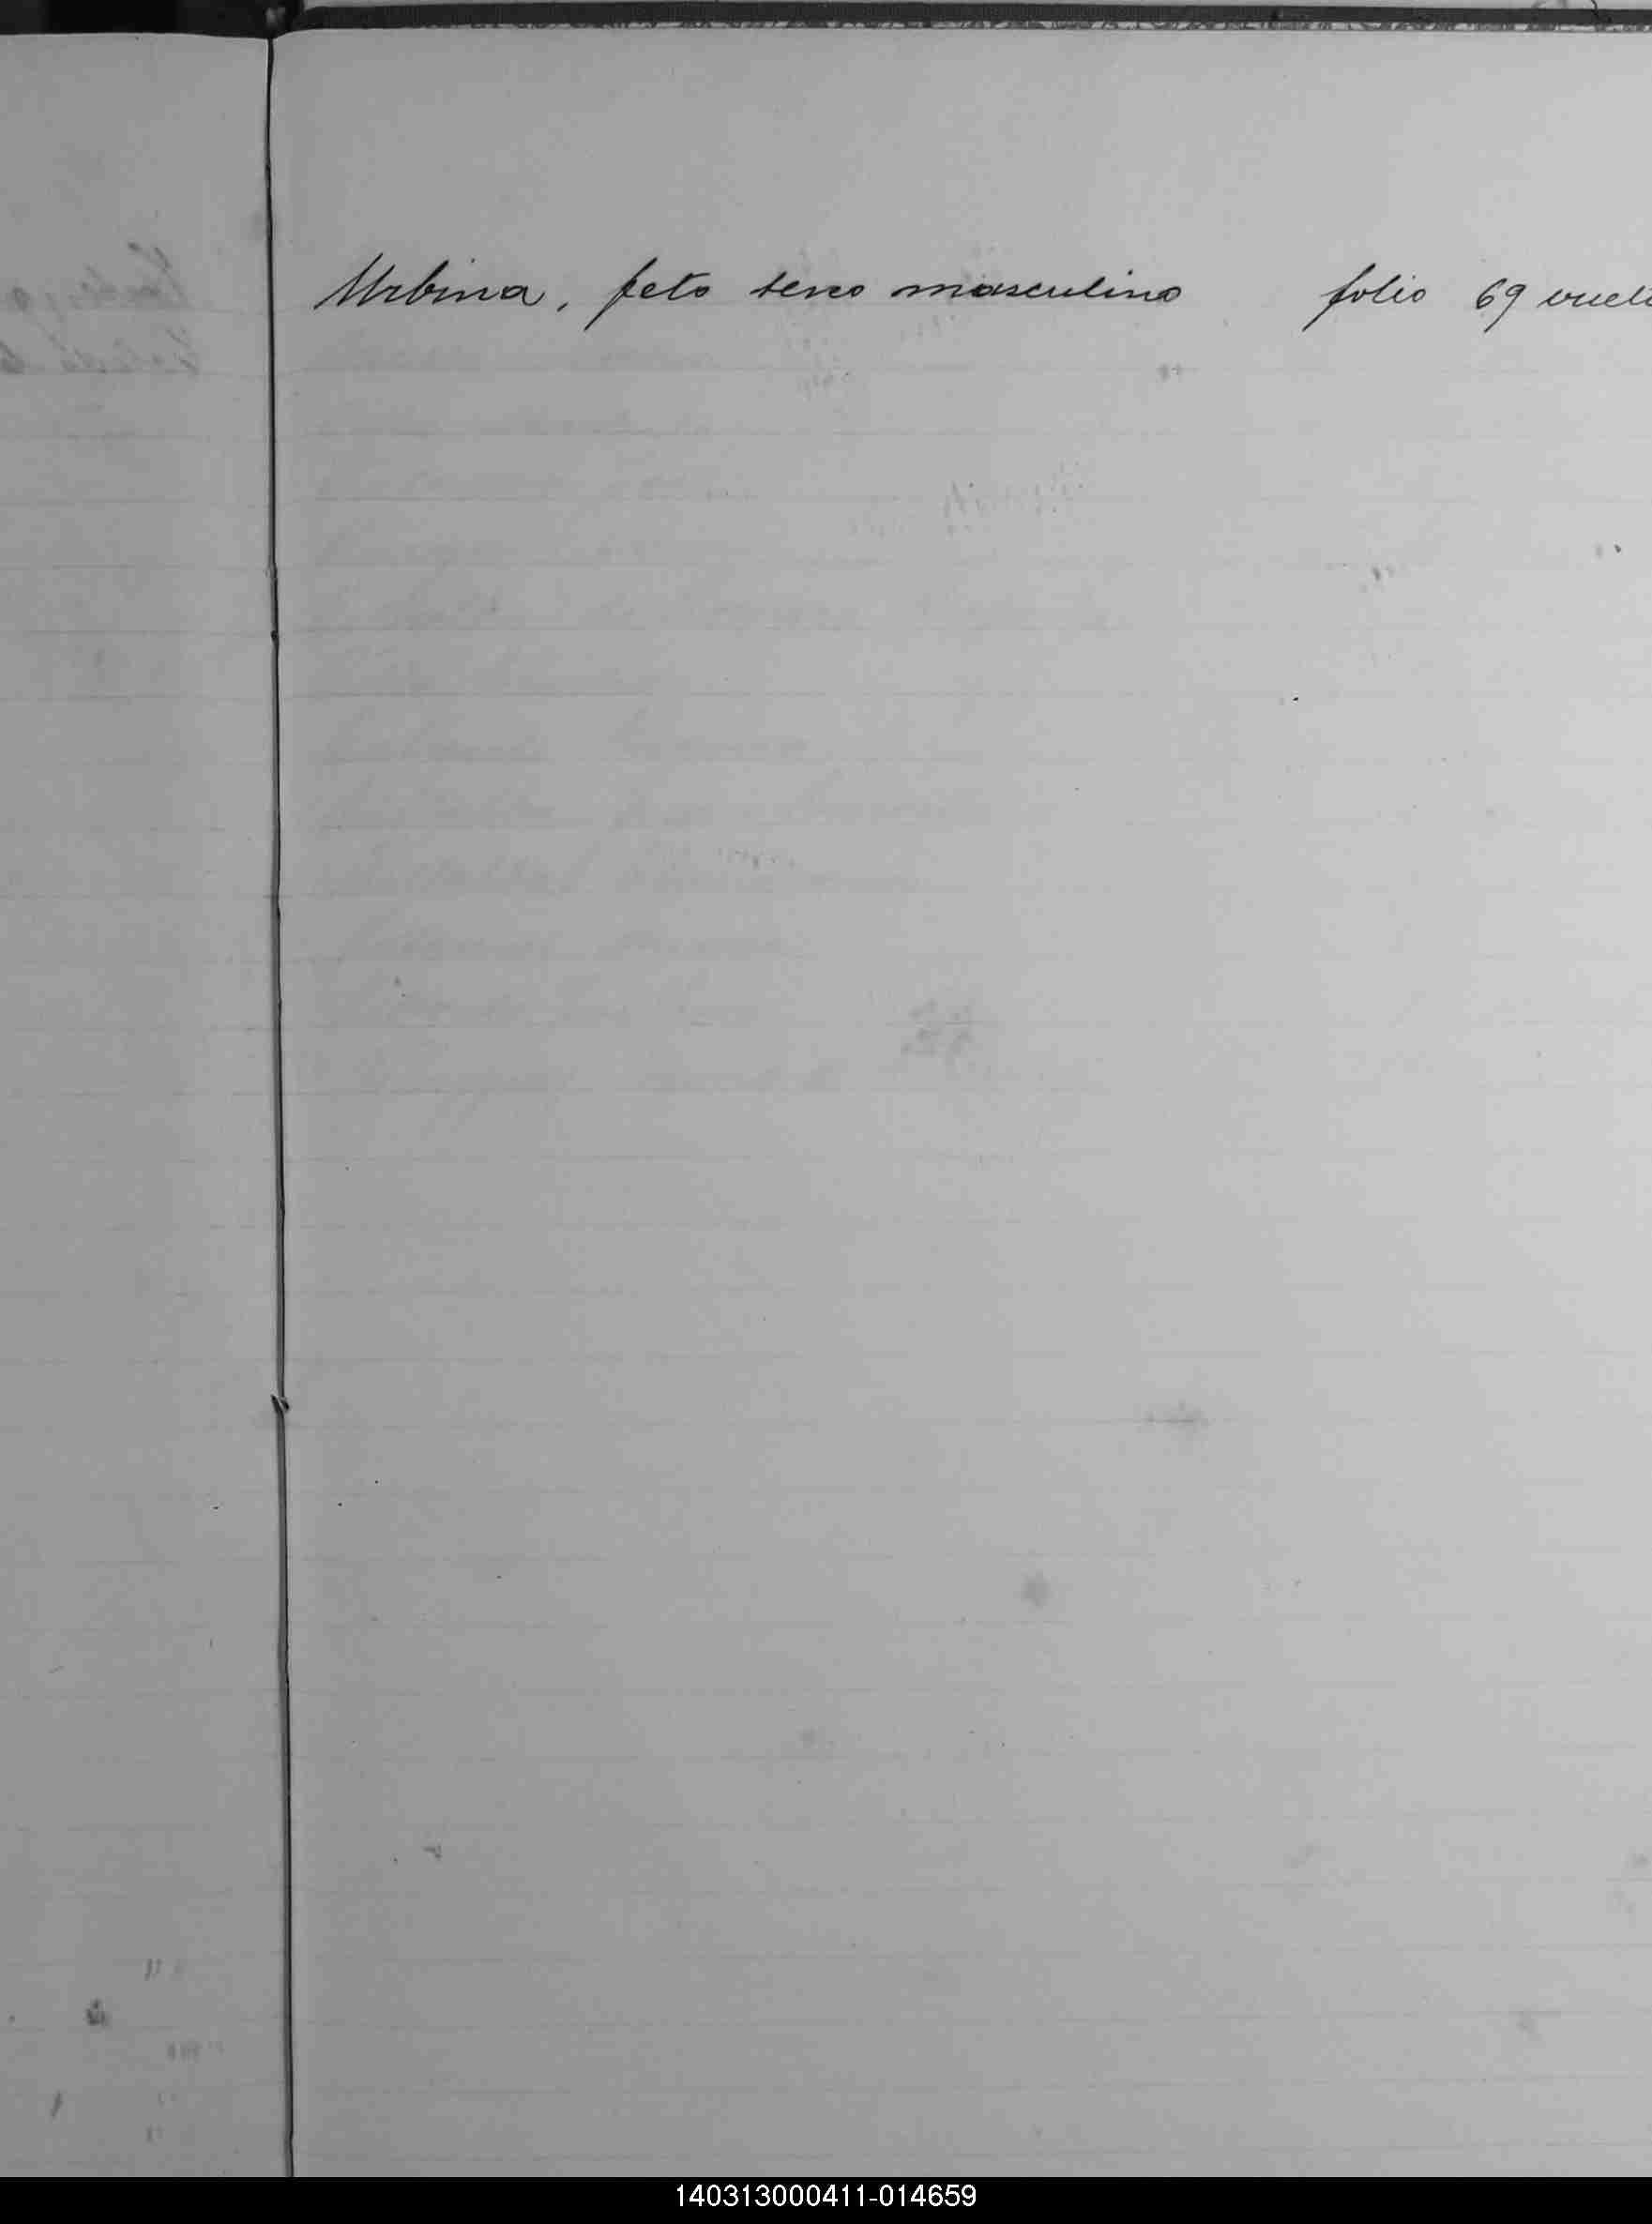 Urbina, feto sexo masculino folio 69 vuelt
140313000411-014659